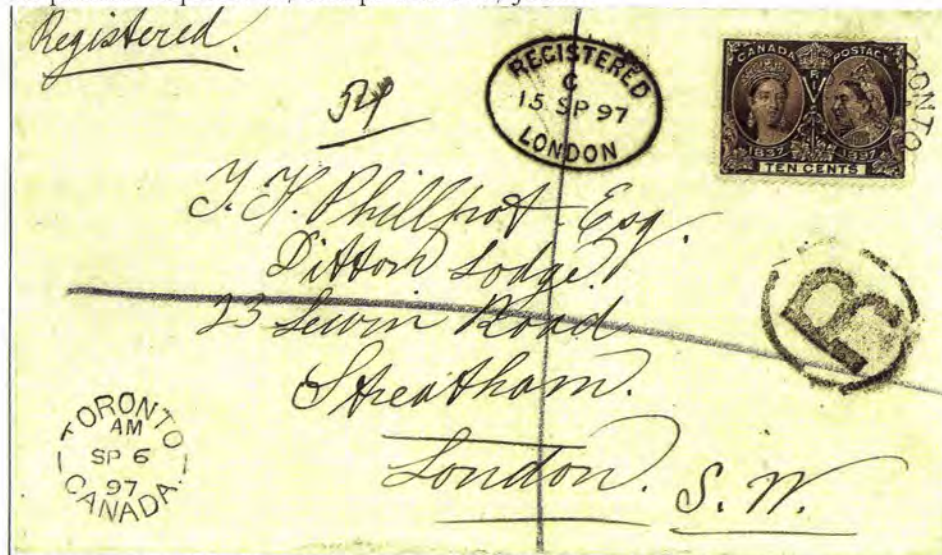 Registered.
REGISTERED
C
15. SP 97
LONDON
CANADA POSTAGE
V R I
1837 1897
TEN CENTS
ONTO
54
T. H. Phillpot Esq.
Ditton Lodge.
23 Lewin Road
Streatham.
London. S. W.
R
TORONTO
AM
SP 6
97
CANADA.